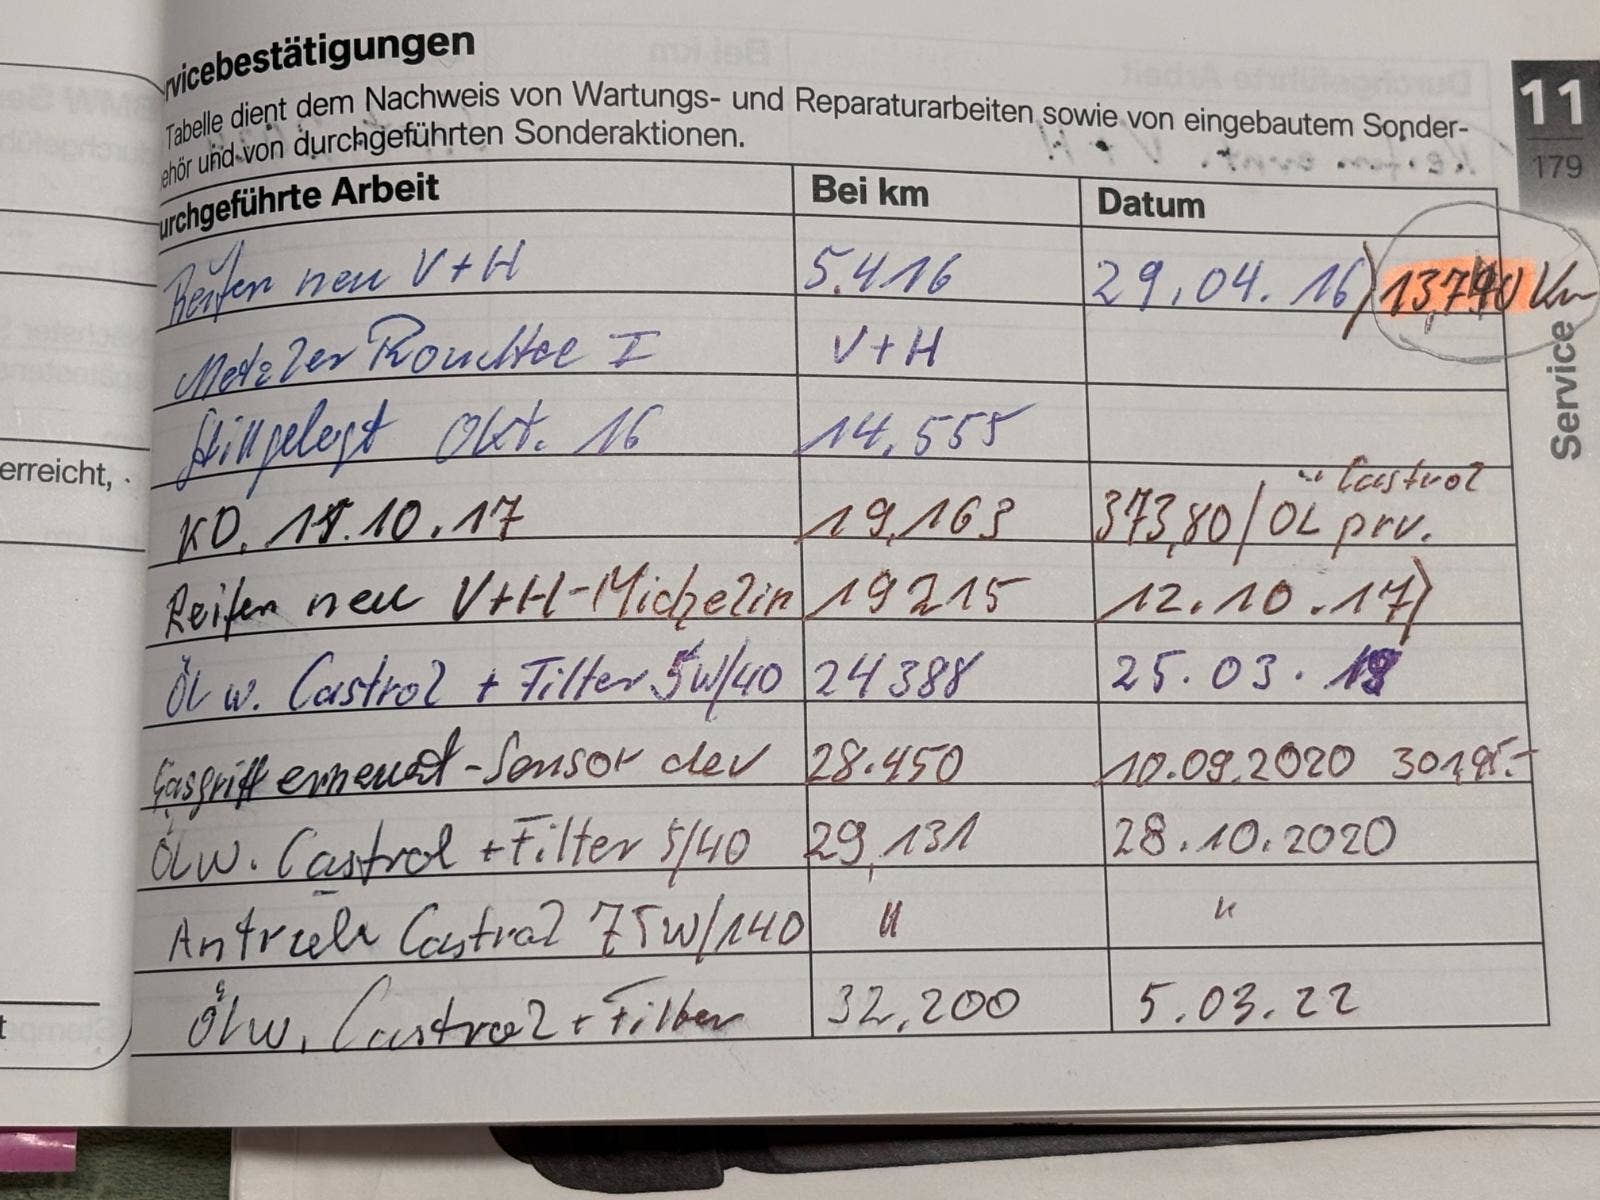 rvicebestätigungen
Tabelle dient dem Nachweis von Wartungs- und Reparaturarbeiten sowie von eingebautem Sonder-
ehör und von durchgeführten Sonderaktionen.
11
179
Service
erreicht,
t
urchgeführte Arbeit Bei km Datum
Reifen neu V+H 5.416 29.04.16) 13,790 Km
Metzler I V+H
Stillgelegt Okt. 16 14.555
KD. 10.17 19,163 373,80/ÖL Castrol prv.
Reifen neu V+H-Michelin 19215 12.10.17)
ÖL w. Castrol + Filter 5W/40 24388 25.03.
Gasgriff erneuert-Sensor def 28.450 10.09.2020
ÖLw. Castrol + Filter 5/40 29,131 28.10.2020
Antrieb Castrol 75W/140 " "
ÖLw. Castrol + Filter 32,200 5.03.22